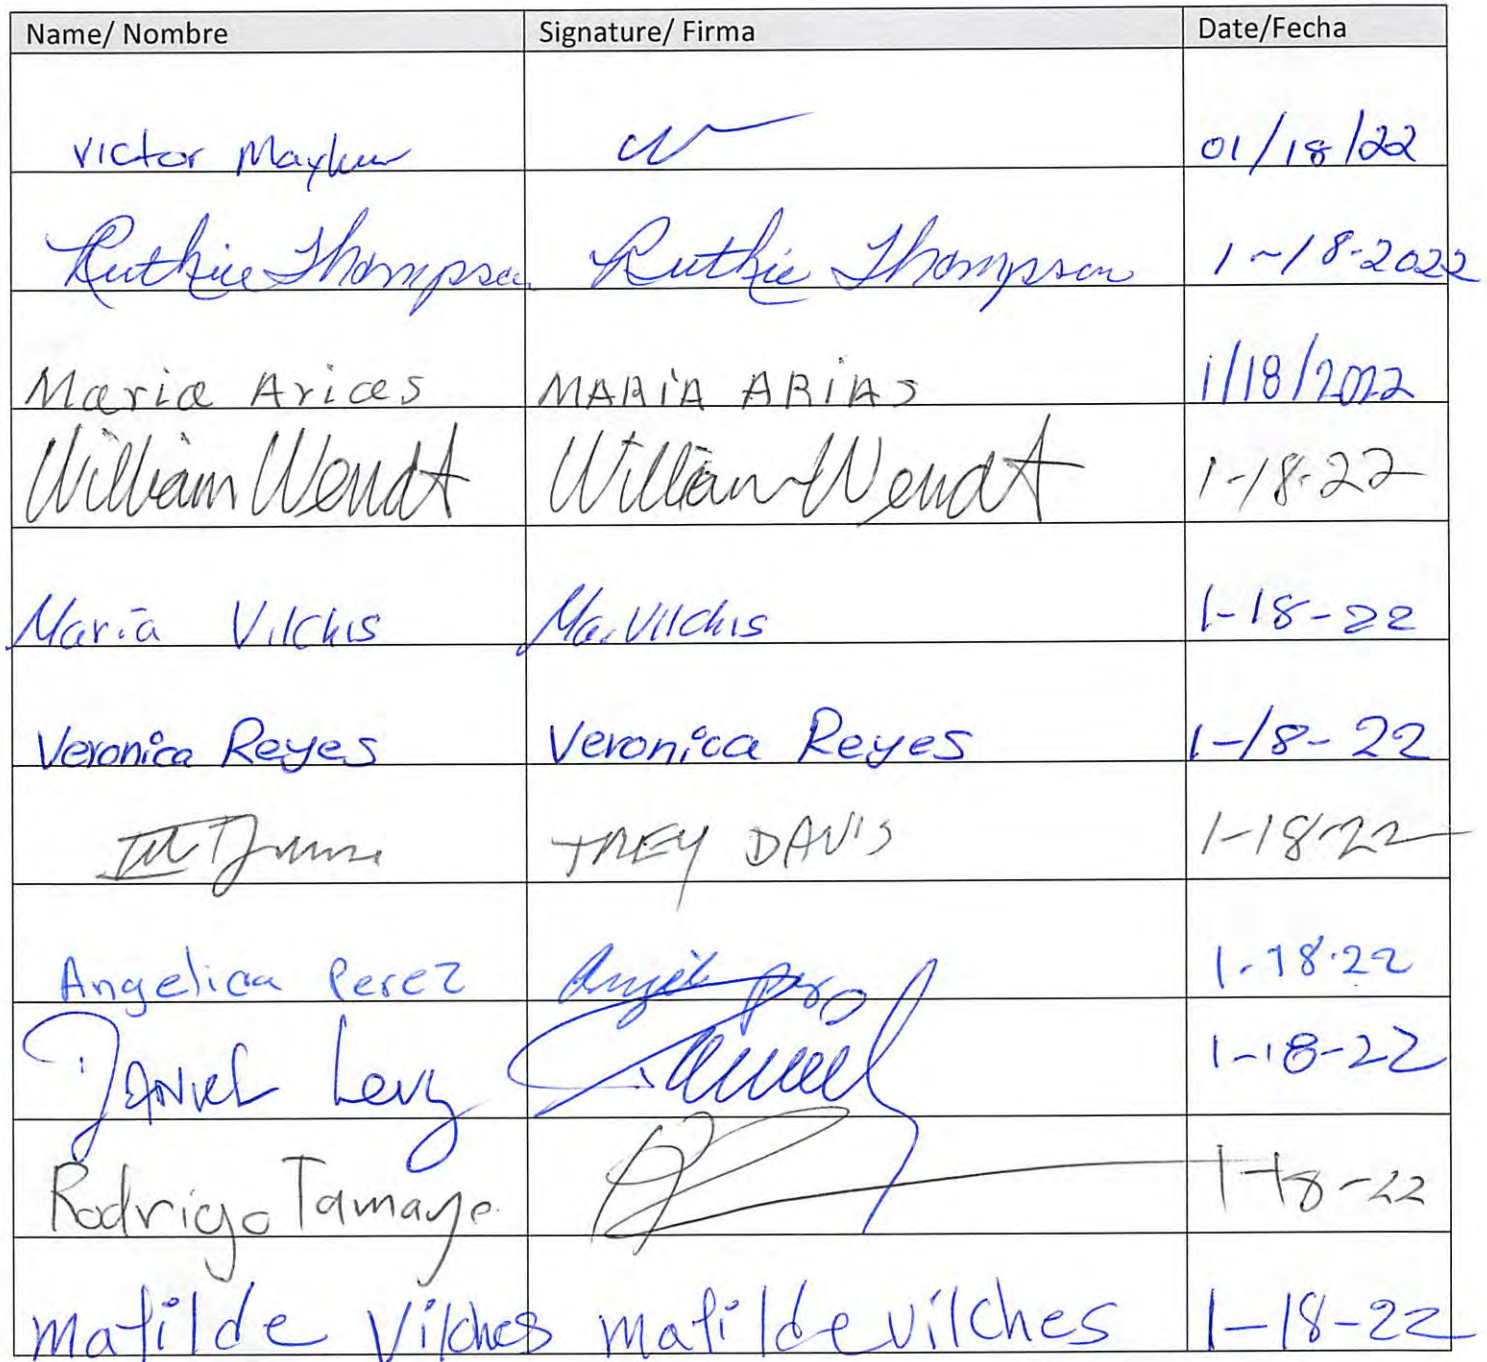 Name/ Nombre Signature/ Firma Date/Fecha
Victor 01/18/22
Ruthie Thompson Ruthie Thompson 1-18-2022
Maria Arias MARIA ARIAS 1/18/2022
William Wendt William Wendt 1-18-22
Maria Vilchis Ma. Vilchis 1-18-22
Veronica Reyes Veronica Reyes 1-18-22
TREY DAVIS 1-18-22
Angelica Perez 1-18-22
DANIEL Levy 1-18-22
Rodrigo Tamayo 1-18-22
matilde Vilches matilde vilches 1-18-22